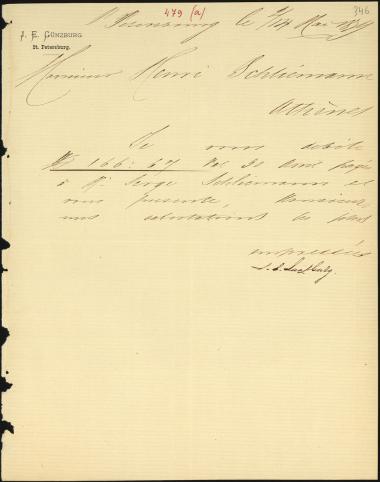 479 (a)
346
J. E. GÜNZBURG
St. Petersburg.
St Petersbourg le
Monsieur Henri Schliemann
Athènes
Je vous débite
166.67 payé
à Mr Serge Schliemann et
vous présente, Monsieur,
mes salutations les plus
empressées